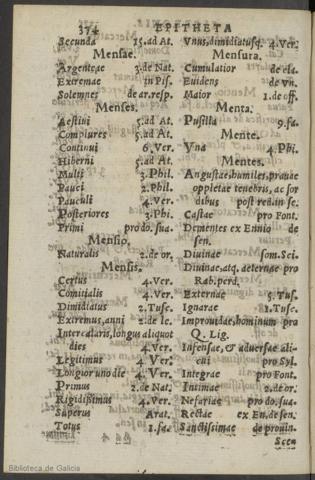 374 EPITHETA
Secunda 15.ad At.
Mensae.
Argenteae 3.de Nat.
Extremae in Pis.
Solemnes de ar.resp.
Menses.
Aestiui 5.ad At.
Complures 5.ad At.
Continui 6.Ver.
Hiberni 5.ad At.
Multi 3.Phil.
Pauci 2.Phil.
Pauculi 4.Ver.
Posteriores 3.Phi.
Primi pro do. sua.
Mensio.
Naturalis 2.de or.
Mensis.
Certus 4.Ver.
Comitialis 4.Ver.
Dimidiatus 2.Tusc.
Extremus, anni 2.de le.
Intercalaris, longus aliquot
dies 4.Ver.
Legitimus 4.Ver.
Longior uno die 4.Ver.
Primus 2.de Nat.
Rigidissimus 4.Ver.
Superus Arat.
Totus 1.fa.
Vnus, dimidiatusq. 4.Ver.
Mensura.
Cumulatior de cla.
Euidens de Vn.
Maior 1.de off.
Menta.
Pusilla 9.fa.
Mente.
Vna 4.Phi.
Mentes.
Angustae, humiles, prauae
oppletae tenebris, ac sor
dibus post red. in se.
Castae pro Font.
Dementes ex Ennio de
sen.
Diuinae som.Sci.
Diuinae, atq. aeternae pro
Rab. perd.
Externae 5.Tus.
Ignarae 81.Tusc.
Improuidae, hominum pra
Q. Lig.
Infensae, & aduersae ali-
cui pro Syl.
Integrae pro Font.
Intimae 2.de or.
Nefariae pro do. sua.
Rectae ex En. de sen.
Sanctissimae de prouin.
Scen
Biblioteca de Galicia